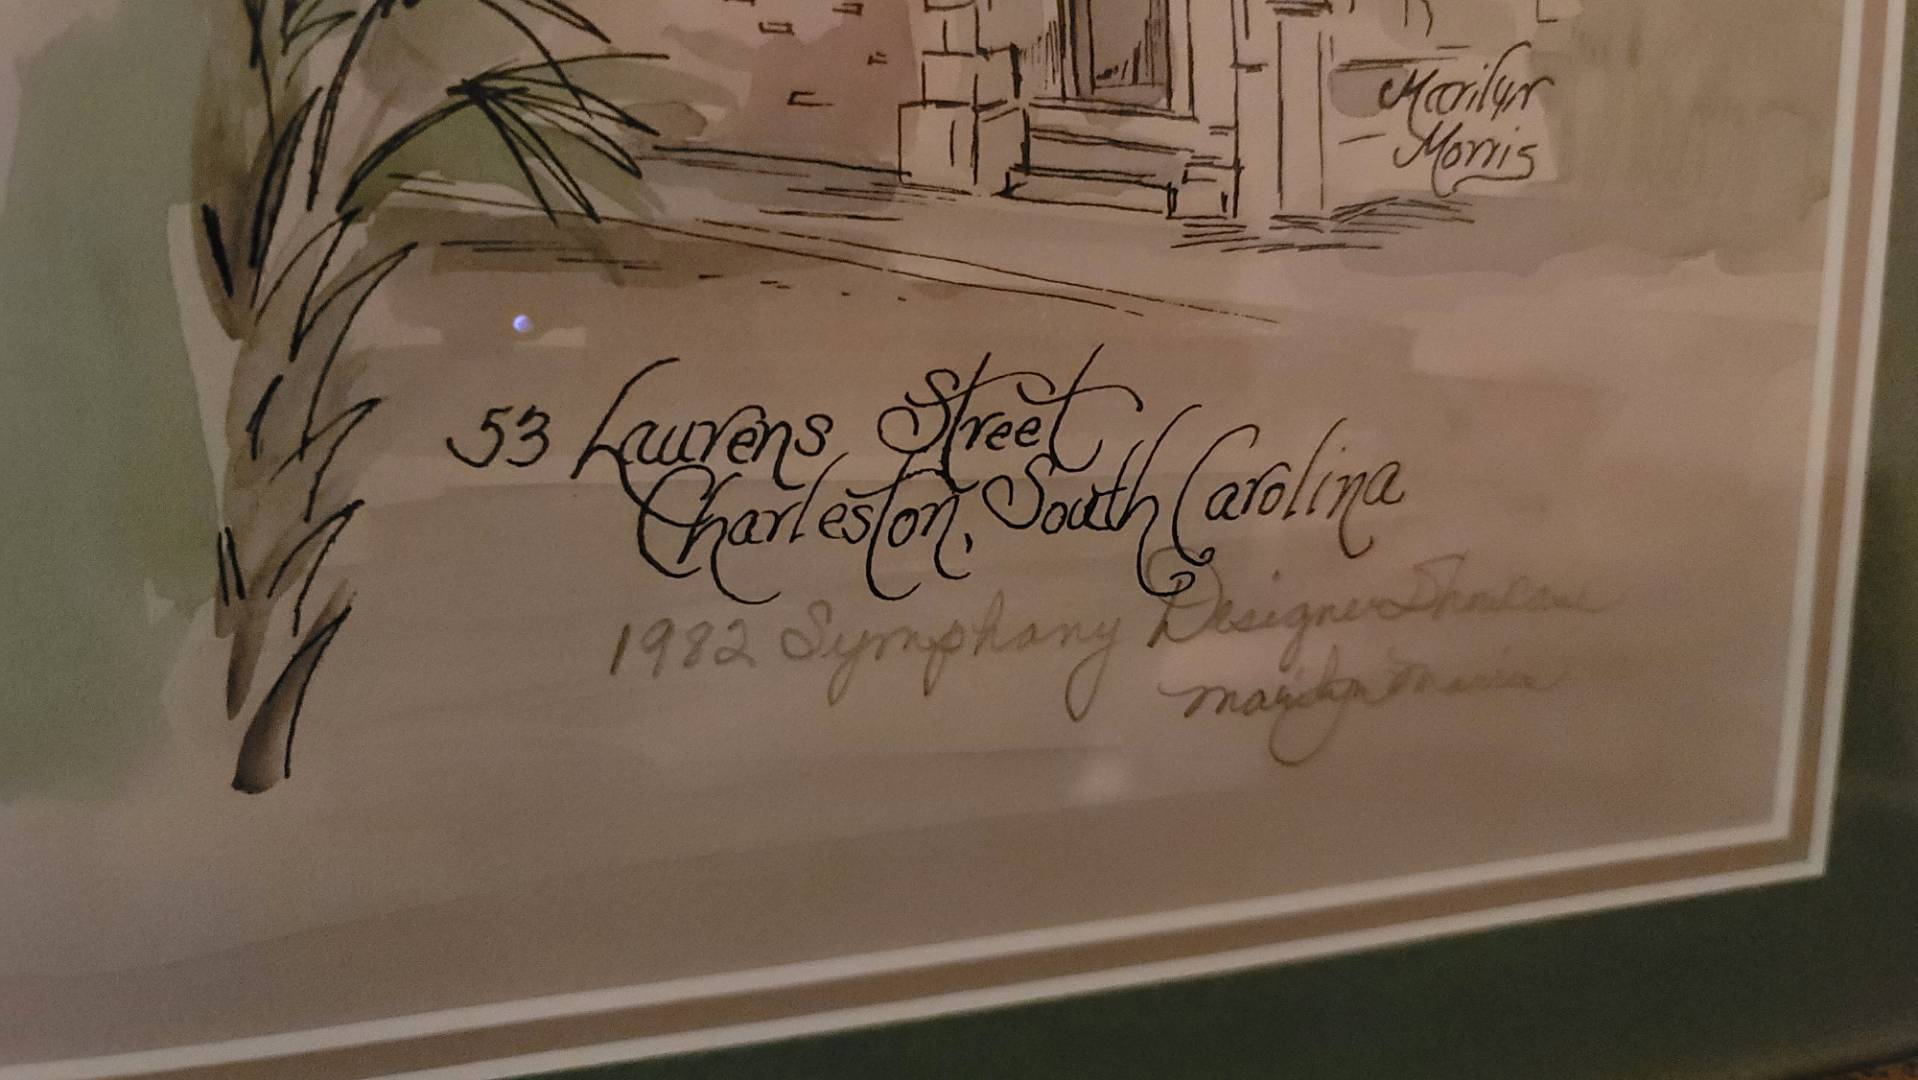 Marilyn
Morris
53 Laurens Street
Charleston, South Carolina
1982 Symphony Designer Showcase
Marilyn Morris